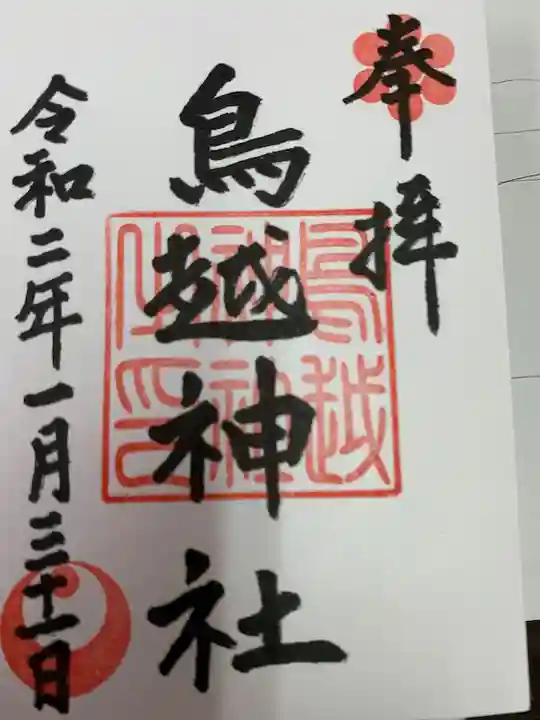 奉拝
鳥越神社
令和二年一月三十一日
鳥越
神社
之印